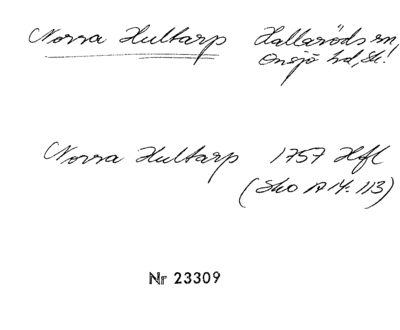 Norra Hultarp Hallaröds sn,
Onsjö hd, Sk!
Norra Hultarp 1757 Hfl
(Sko A 14. 113)
Nr 23309